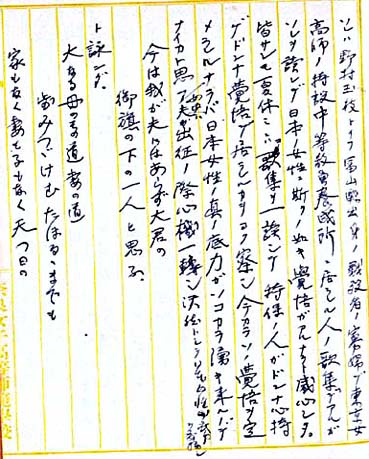 ソハ野村玉枝トイフ富山縣出身ノ戰歿者ノ寡婦デ東京女
高師ノ特設中等教員養成所ニ居ラレル人ノ歌集デアルガ
ソレヲ讀ンデ日本ノ女性ニ斯クノ如キ覺悟ガアルナラト感心シタ。
皆サンモ夏休ニハ歌集ヲ一讀シテ特保ノ人ガドンナ心持
ゲドンナ覺悟デ居ラレルカヲヨク察シ今カラソノ覺悟ヲ定
メラレルナラバ日本女性ノ真ノ底力ガソコカラ湧キ来ルンデ
ナイカト思フ 夫が出征ノ際心機一轉シ
今は我が夫にはあらず大君の
御旗の下の一人と思ふ
ト詠ンダ。
大なる母の道妻の道
歩みつゞけむたほるゝまでも
家もなく妻も子もなく天つ日の